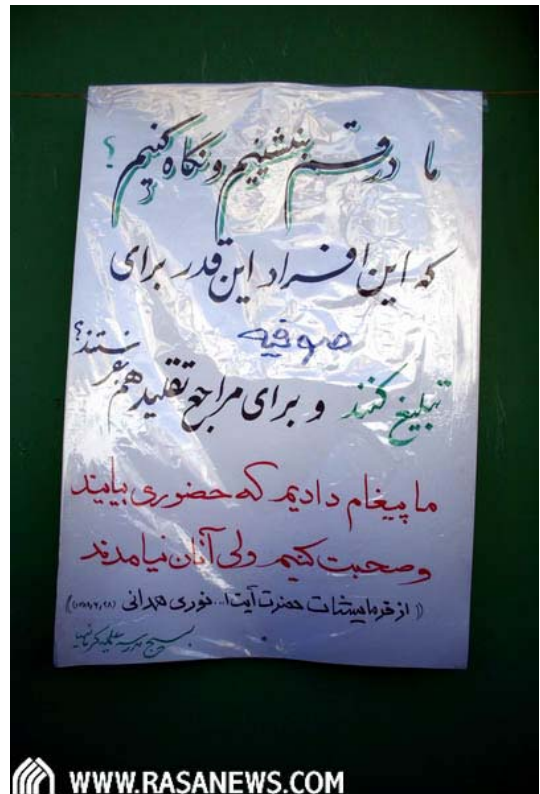 ما در قم بنشینیم و نگاه کنیم؟
که این افراد این قدر برای
صوفیه
تبلیغ کنند و برای مراجع تقلید هم بفرستند؟
ما پیغام دادیم که حضوری بیایند
و صحبت کنیم ولی آنان نیامدند
(( از فرمایشات حضرت آیت ا... نوری همدانی
بسیج مدرسه علمیه کرمانیها
WWW.RASANEWS.COM